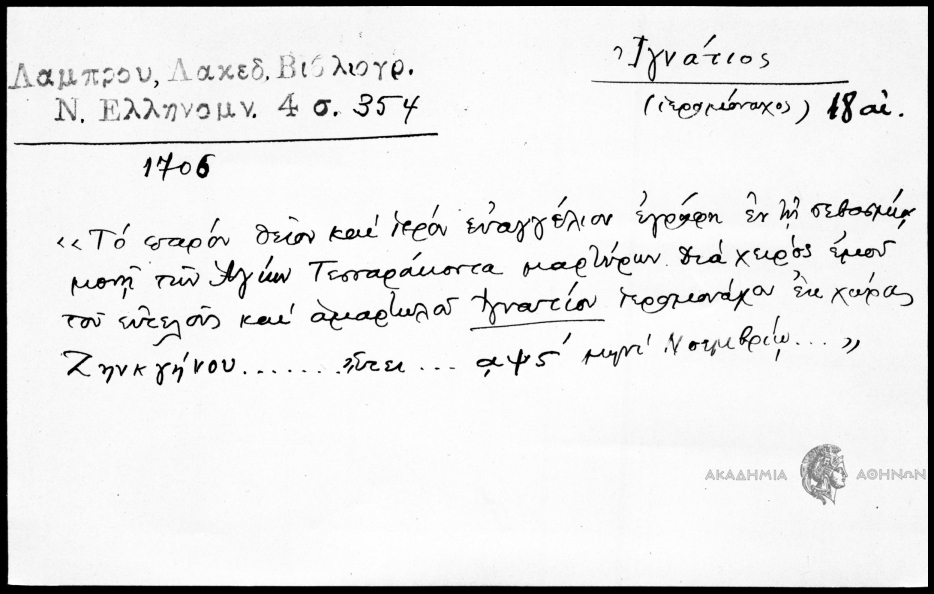 Λαμπρου, Λακεδ. Βιβλιογρ.
Ν. Ελληνομν. 4 σ. 354
1706
Ἰγνάτιος
(ἱερομόναχος) 18 αἰ.
«Τό παρόν θεῖον καί ἱερόν εὐαγγέλιον ἐγράφη ἐν τῇ σεβασμίᾳ
μονῇ τῶν Ἁγίων Τεσσαράκοντα μαρτύρων διά χειρός ἐμοῦ
τοῦ εὐτελοῦς καί ἁμαρτωλοῦ Ἰγνατίου ἱερομονάχου ἐκ χώρας
Ζηνκγήνου....... ἔτει ... ͵αψϛ΄ μηνί Νοεμβρίῳ....»
ΑΚΑΔΗΜΙΑ ΑΘΗΝΩΝ